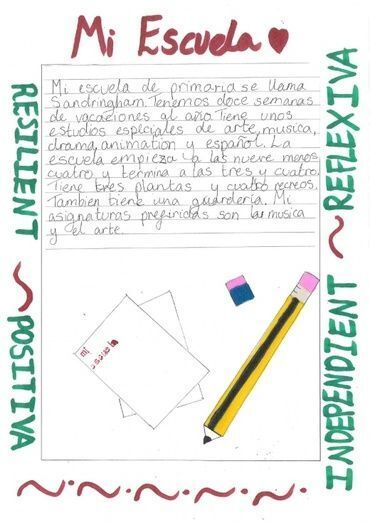 Mi Escuela
Mi escuela de primaria se llama
Sandringham. Tenemos doce semanas
de vacaciones al año. Tiene unos
estudios especiales de arte, musica,
drama, animation y español. La
escuela empieza a las nueve menos
cuatro y termina a las tres y cuatro.
Tiene tres plantas y cuatro recreos.
Tambien tiene una guardería. Mi
asignaturas preferidas son la musica
y el arte.
RESILIENT ~ POSITIVA
REFLEXIVA ~ INDEPENDIENT
mi
escuela